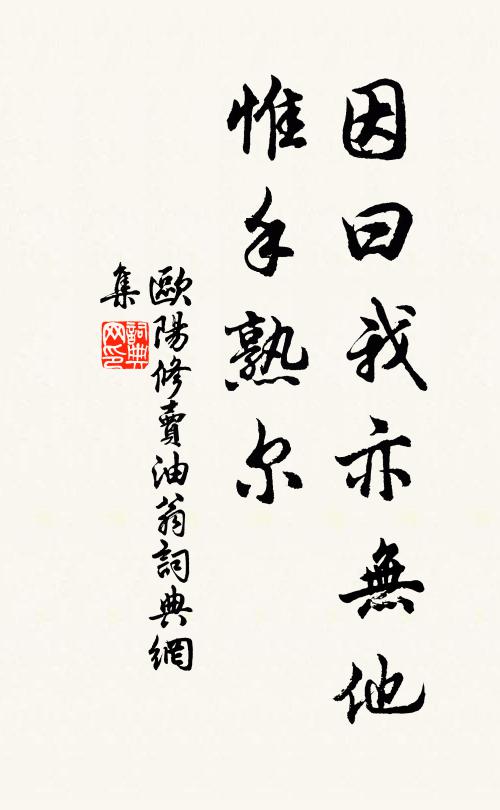 因曰我亦無他
惟手熟尔
歐陽修賣油翁詞典網
集
詞典网印